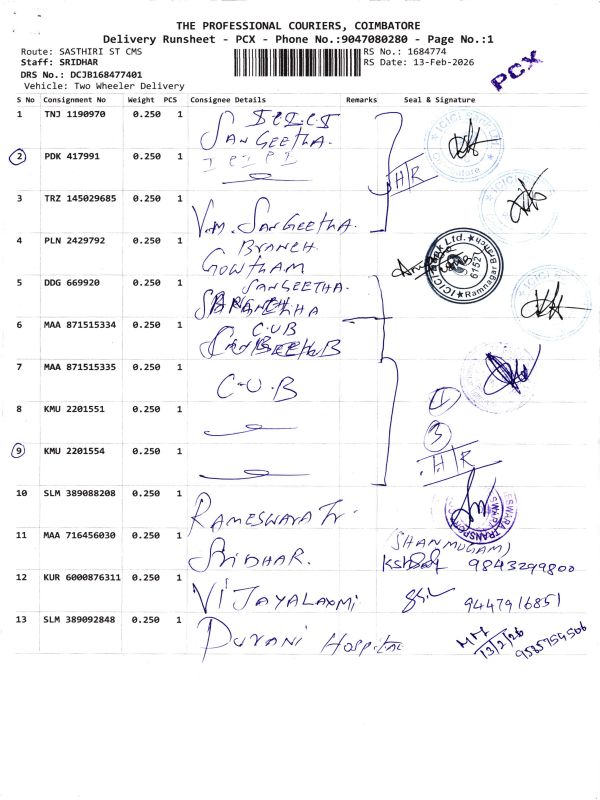 THE PROFESSIONAL COURIERS, COIMBATORE
Delivery Runsheet - PCX - Phone No.:9047080280 - Page No.:1
Route: SASTHIRI ST CMS RS No.: 1684774
Staff: SRIDHAR RS Date: 13-Feb-2026
DRS No.: DCJB168477401
Vehicle: Two Wheeler Delivery
PCX
S No Consignment No Weight PCS Consignee Details Remarks Seal & Signature
1 TNJ 1190970 0.250 1
SANGEETHA.
2 PDK 417991 0.250 1
H/R
3 TRZ 145029685 0.250 1 V.M. SANGEETHA.
4 PLN 2429792 0.250 1 BRANCH.
GOWTHAM
ICICI Bank Ltd. Ramnagar Branch
5 DDG 669920 0.250 1 SANGEETHA.
6 MAA 871515334 0.250 1 C.U.B
7 MAA 871515335 0.250 1 C.U.B
8 KMU 2201551 0.250 1
3
9 KMU 2201554 0.250 1 H/R
10 SLM 389088208 0.250 1 RAMESWARA Tr.
11 MAA 716456030 0.250 1 SRIDHAR. (SHANMUGAM)
9843299800
12 KUR 6000876311 0.250 1 VIJAYALAXMI 9447916851
13 SLM 389092848 0.250 1 DURANI HOSPITAL
13/2/26
9585754506